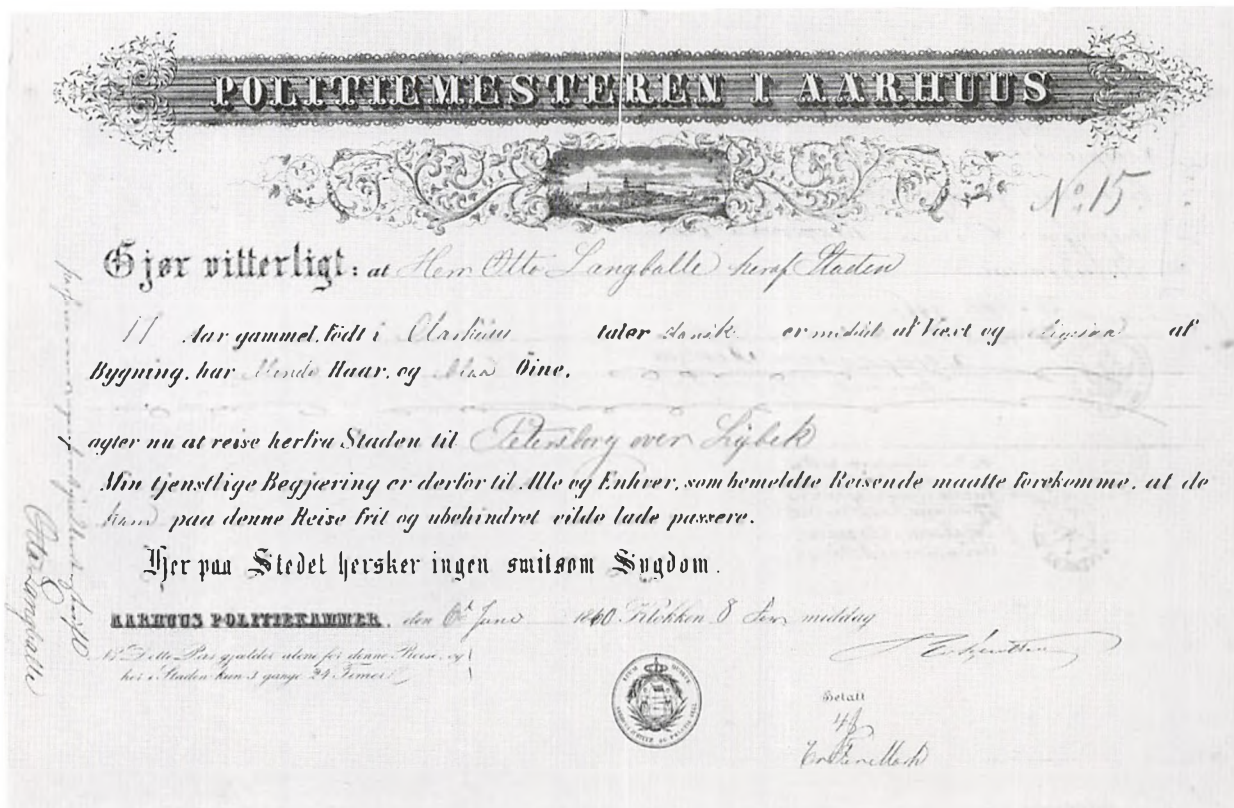 POLITIEMESTEREN I AARHUUS
No: 15.
Gjør vitterligt: at Herr Otto Langballe heraf Staden
17 Aar gammel, födt i Aarhuus taler dansk er middel af Væxt og ligesaa af
Bygning, har blonde Haar, og blaa Öine,
agter nu at reise herfra Staden til Petersborg over Lybek
Min tjenstlige Begjæring er derfor til Alle og Enhver, som bemeldte Reisende maatte forekomme, at de
ham paa denne Reise frit og ubehindret vilde lade passere.
Her paa Stedet hersker ingen smitsom Sygdom.
AARHUUS POLITIEKAMMER, den 6te Juni 1840 Klokken 8 For middag
Dette Pas gjælder alene for denne Reise, og
her i Staden kun 3 gange 24 Timer.
Betalt
4
Otto Langballe